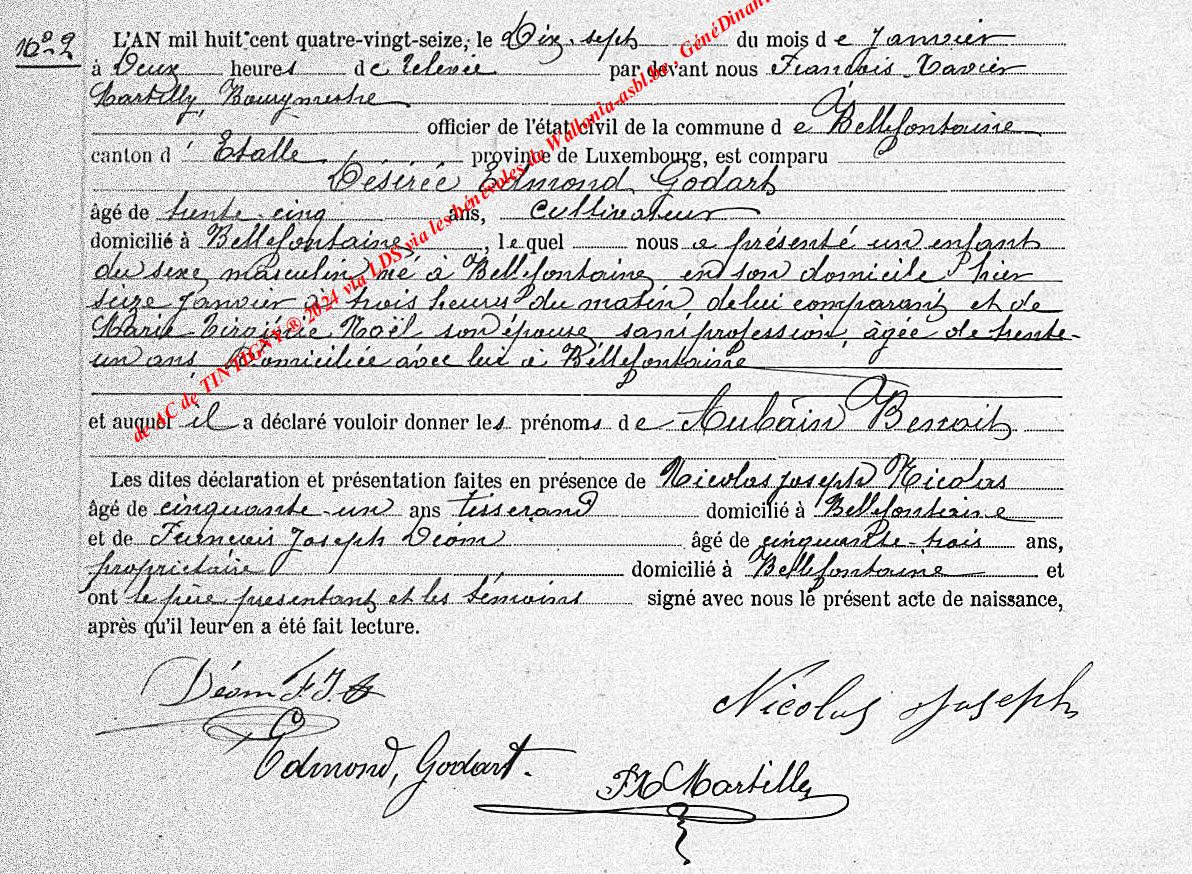 N° 2
L'AN mil huit cent quatre-vingt-seize, le Dix-sept du mois de Janvier
à Deux heures de relevée par devant nous François Xavier
Martilly, Bourgmestre
officier de l'état civil de la commune de Bellefontaine
canton d' Etalle province de Luxembourg, est comparu
Désirée Edmond Godart
âgé de trente-cinq ans, cultivateur
domicilié à Bellefontaine, lequel nous a présenté un enfant
du sexe masculin né à Bellefontaine en son domicile hier
seize Janvier à trois heures du matin de lui comparant et de
Marie-Virginie Noël son épouse sans profession, âgée de trente-
un ans domiciliée avec lui à Bellefontaine
et auquel il a déclaré vouloir donner les prénoms de Aubain Benoit
Les dites déclaration et présentation faites en présence de Nicolas Joseph Nicolas
âgé de cinquante-un ans tisserand domicilié à Bellefontaine
et de François Joseph Déom âgé de cinquante-trois ans,
propriétaire domicilié à Bellefontaine et
ont le père présentant et les témoins signé avec nous le présent acte de naissance,
après qu'il leur en a été fait lecture.
Déom F. J.
Nicolas Joseph
Edmond, Godart.
FX Martilly
de AC de TINTIGNY ® 2024 via LDS via les bénévoles de Wallonia-asbl.be, GénéDinant